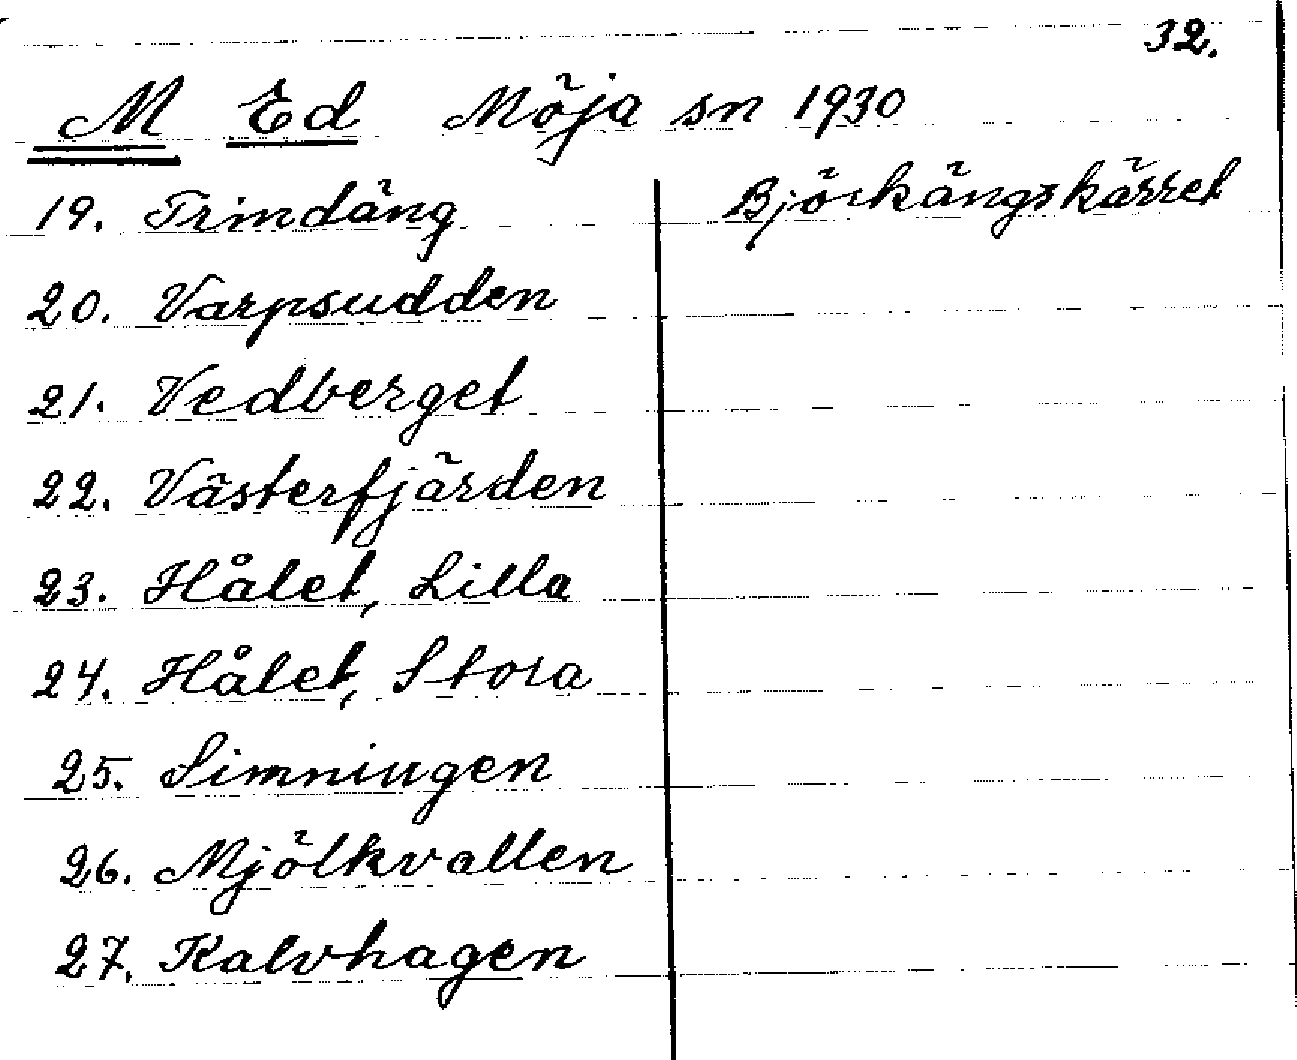 32.
M Ed Möja sn 1930
19. Trindäng
Björkängskärret
20. Varpsudden
21. Vedberget
22. Västerfjärden
23. Hålet, Lilla
24. Hålet, Stora
25. Simningen
26. Mjölkvallen
27. Kalvhagen